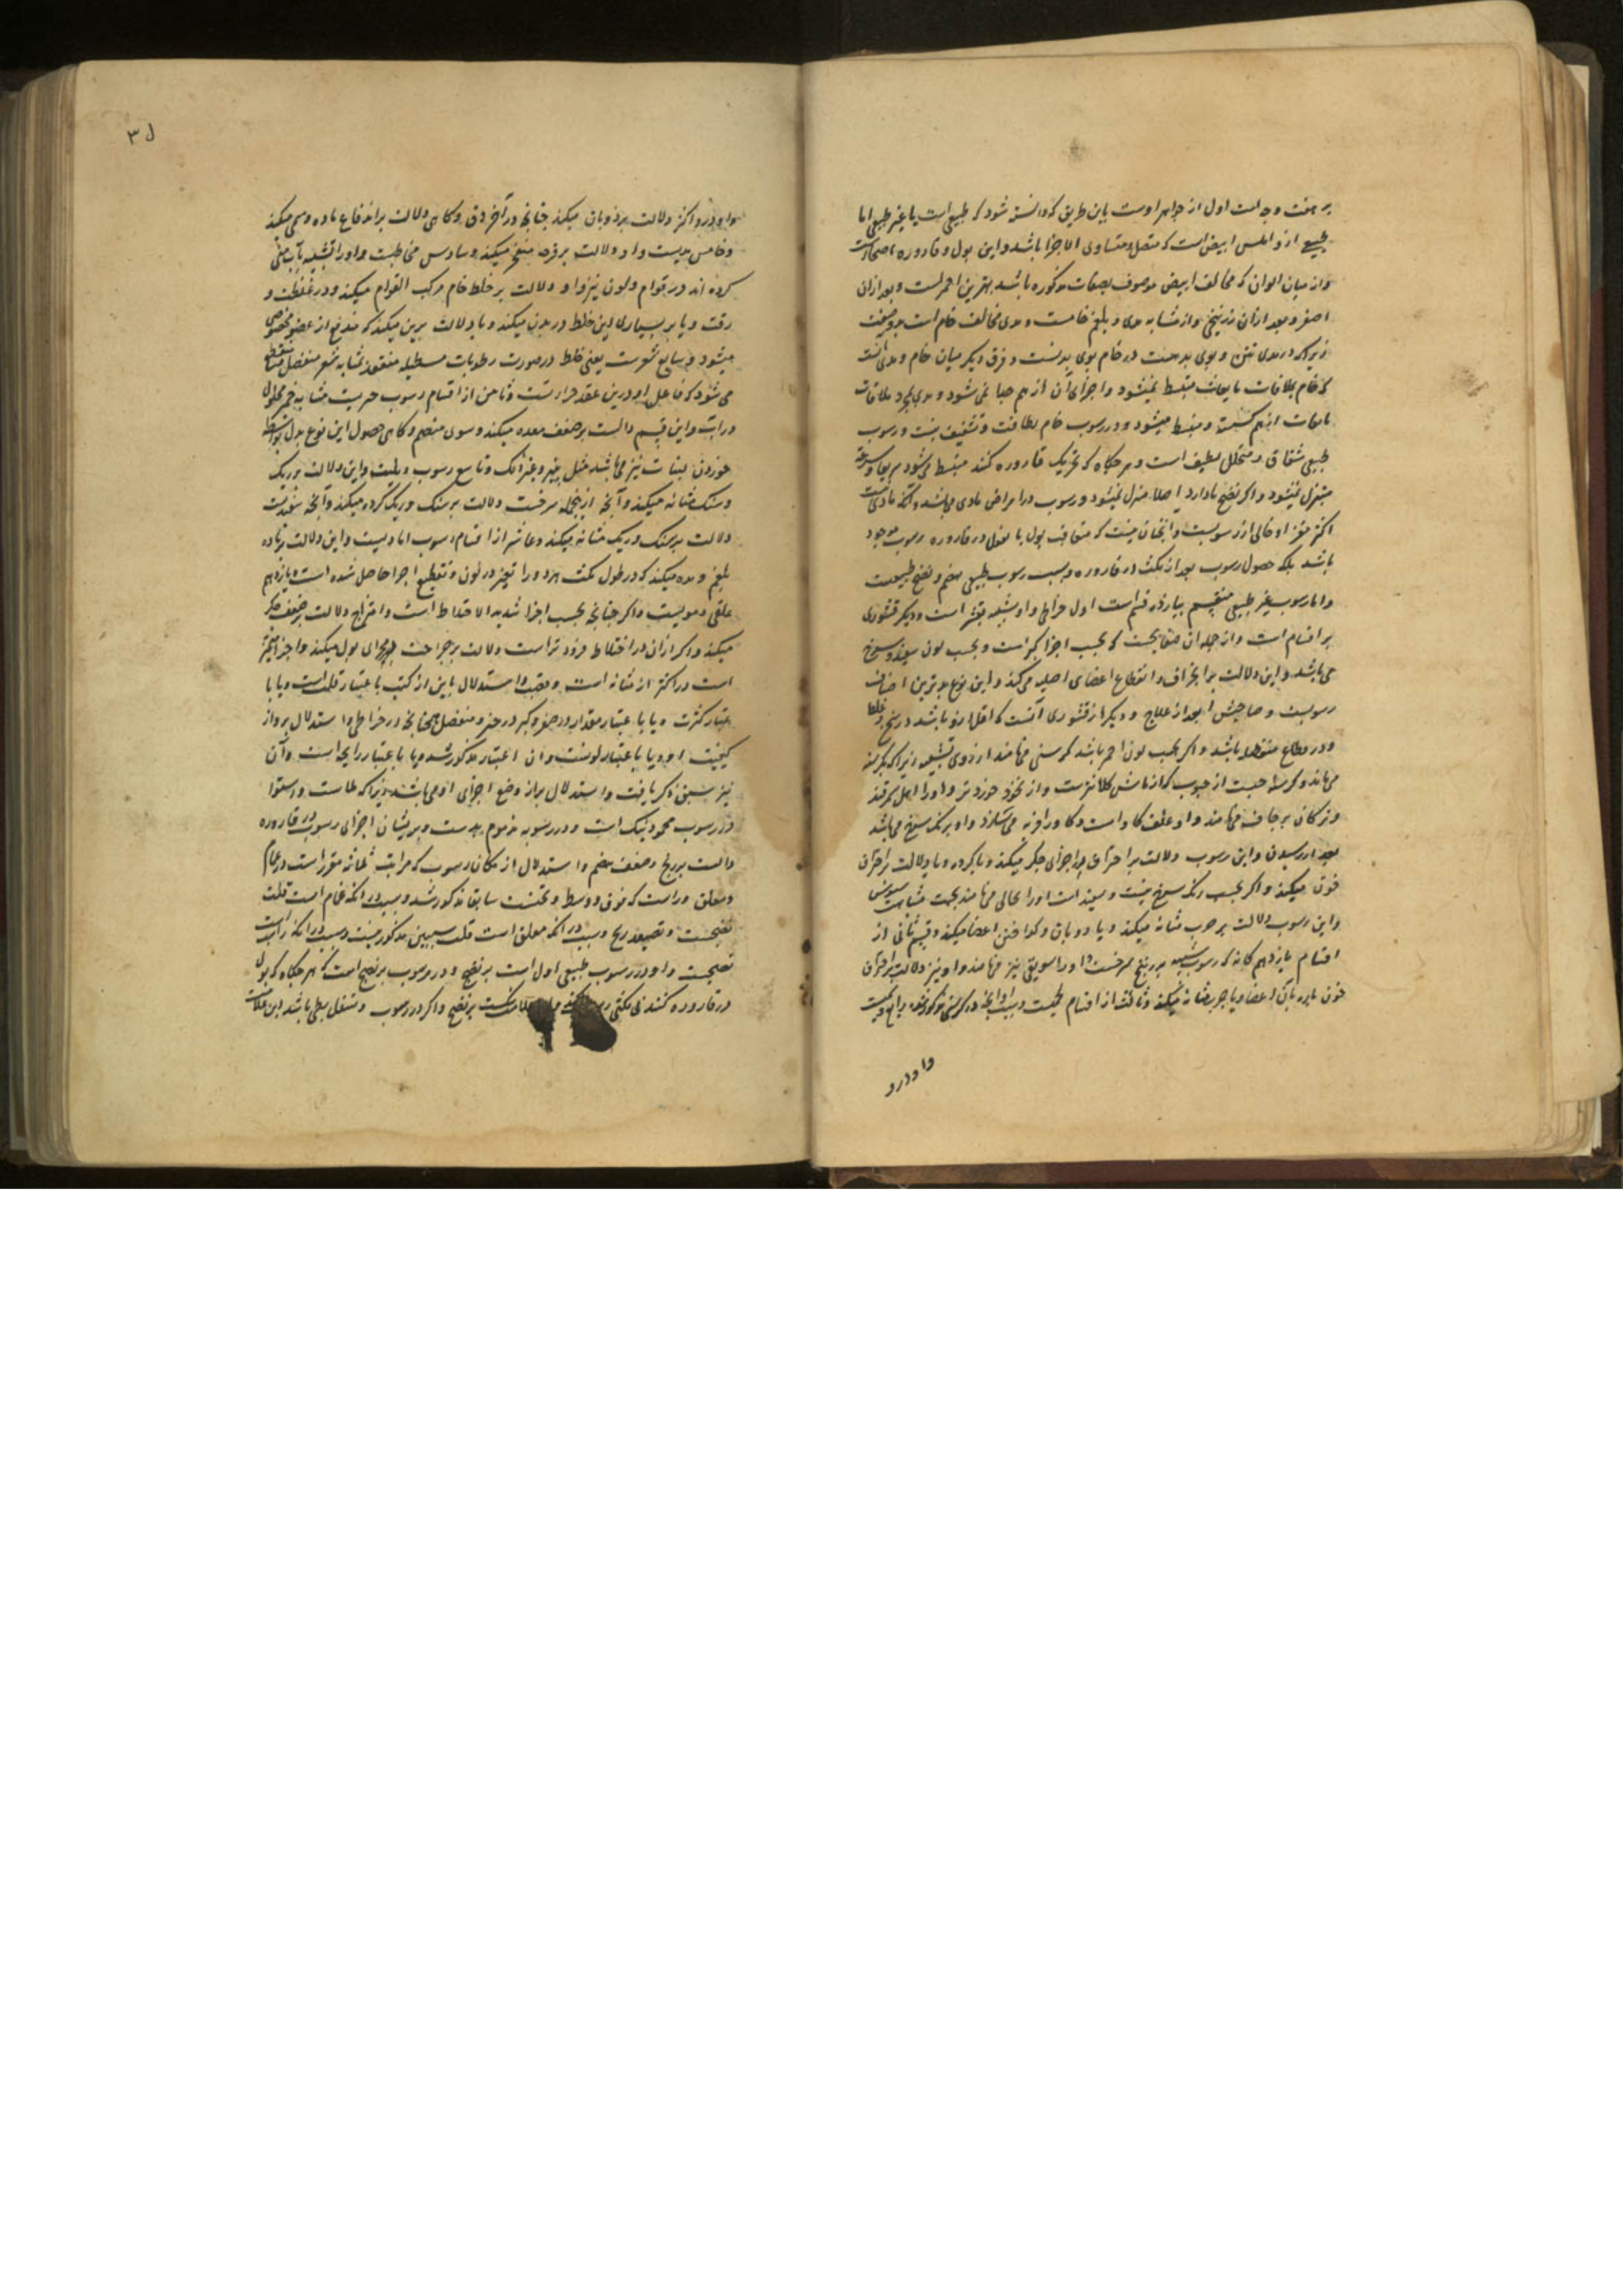 بر هفت وجه است اول از جواهر اوست باین طریق که دانسته شود که طبیعی است یا غیر طبیعی اما
طبیعی از و املس ابیض است که متصل و متساوی الاجزا باشد و این بول و قاروره اصحاست
و از میان الوان که مخالف ابیض موصوف بصفات مذکوره باشد بهترین احمر است و بعد ازان
اصفر و بعد ازان زرنیخی و از مشابه مدی و بلغم خامست و مدی مخالف خام است بدو صفت
زیراکه در مدی نتن و بوی بد هست در خام بوی بد نیست و فرق دیگر میان خام و مدی آنست
که خام بملاقات مایعات منبسط نمیشود و اجزای آن از هم جدا نمی شود و مدی بمجرد ملاقات
مایعات از هم گسسته و منبسط میشود و در رسوب خام لطافت و تشفیف نیست و رسوب
طبیعی شفاف و متخلل لطیف است و هر جکاه که تحریک قاروره کنند منبسط می شود سریعا و بسرعة
متنزل نمیشود و اکر نضج ندارد اصلا متنزل نمیشود و رسوب در امراض مادی می باشد و آنکه مادی نیست
اکثر مغز او خالی از رسوبست و انچنان نیست که متعاقب بول بالفعل در قاروره رسوب موجود
باشد بلکه حصول رسوب بعد از مکث در قاروره و سبب رسوب طبیعی هضم و نضج طبیعت
و اما رسوب غیر طبیعی منقسم بیازده قسم است اول خراطی و او شبیه بقشر است و دیکر قشوری
بر اقسام است و از جمله آن صفایحیست که بحسب اجزا کبر است و بحسب لون سفید و سرخ
می باشد و این دلالت بر انجراف و انقطاع اعضای اصلیه می کند و این نوع بدترین اصناف
رسوبست و صاحبش ابعد از علاج و دیکر از قشوری آنست که اقل ازو باشد در سخن و غلظ
و اکر بحسب لون احمر باشد کرسنی می نامند از روی تشبیه زیراکه بکرسنه
می ماند و کرسنه حبیست از حبوب که از ماش کلانترست و از نخود خوردتر و او را اهل سمرقند
و ترکان برجاق می نامند و او علف کاو است و کاو را فربه می سازد و او برنک سرخ می باشد
بعد از رسیدن و این رسوب دلالت بر احتراق اجزای جکر میکند و یا کرده و یا دلالت بر احتراق
خون میکند و اکر بحسب رنک سرخ نیست و سفید است او را نخالی می نامند بجهت مشابهت
و این رسوب دلالت بر جرب مثانه میکند و یا ذوبان و کداختن اعضا میکند و قسم ثانی از
اقسام یازده کانه که رسوب شبیه بزرنیخ سرخست و او را سویقی نیز می نامند و او نیز دلالت بر احتراق
خون یا ذوبان اعضا و یا جرب مثانه میکند و ثالث از اقسام لحمیست
وا و درو
۳۷
و او در اکثر دلالت بر ذوبان میکند چنانچه در آخر دق و کاهی دلالت بر اندفاع ماده دسمی میکند
و خامس مدیست و او دلالت بر قرحه منفجر میکند و سادس مخاطیست و او را تشبیه بآب منی
کرده اند در قوام و لون نیز و او دلالت بر خلط خام مرکب القوام میکند و در غلظت و
رقت و یا بر بسیاری این خلط در بدن میکند و یا دلالت برین میکند که مندفع از عضو مخصوص
میشود و سابع شعریست یعنی خلط در صورت رطوبات مستطیله منعقده مشابه شعر منفصل
می شود که فاعل او درین عقد حرارتست و ثامن از اقسام رسوب خمیریست مشابه خمیر محلول
در آب و این قسم دالست بر ضعف معده میکند و سوی منهضم و کاهی حصول این نوع بول بواسطه
خوردن لبنیات نیز می باشد مثل پنیر و غیر آنک و تاسع رسوب رملیست و این دلالت بر ریک
و سنک مثانه میکند و آنچه ازینجمله سرخست دلالت بر سنک و ریک کرده میکند و آنچه سفیدست
دلالت بر سنک و ریک مثانه میکند و عاشر از اقسام رسوب رمادیست و این دلالت بر ماده
بلغم و مده میکند که در طول مکث مر او را تغیر در لون و تقطیع اجزا حاصل شده است و یازدهم
علقی دمویست و اکر چنانچه بحسب اجزا شدید الاختلاط است و امتزاج دلالت بر ضعف جکر
میکند و اکر ازان در اختلاط فروتر است دلالت بر جراحت مجرای بول میکند و اجزا متمیز
است در اکثر از مثانه است و استدلال باین از کتب باعتبار قلت است و یا با
عتبار کثرت و یا باعتبار مقدار در صغر و کبر در جزو منفصل همچنانچه در خراطی و استدلال بر و از
کیفیت او و یا باعتبار لونست و آن اعتبار مذکور شد و یا باعتبار رایحه است و آن
نیز سبق ذکر یافت و استدلال براز وضع اجزای او می باشد زیراکه ملاست و استوا
در رسوب محمود نیک است و در رسوب مذموم بدست و پریشان اجزای رسوب در قاروره
دالست بر ریح و ضعف هضم و استدلال از مکان رسوب که مراتب ثلاثه مقرر است در غمام
و معلق و راسب که فوق و وسط و تحتست سابقا مذکور شد و سبب در انکه غمام است قلت
نضجست و تصعید ریح و سبب در انکه معلق است قلت سببین مذکورینست و سبب در انکه راسب
نضجست و او در رسوب طبیعی اول است بر نضج و در رسوب بر نضج است که هر جکاه که بول
در قاروره کنند بر نضج و اکر در رسوب و تسفل بطی باشد این علامت